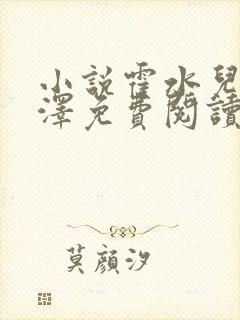 小說霍水兒
澤免費閱讀
莫顏汐